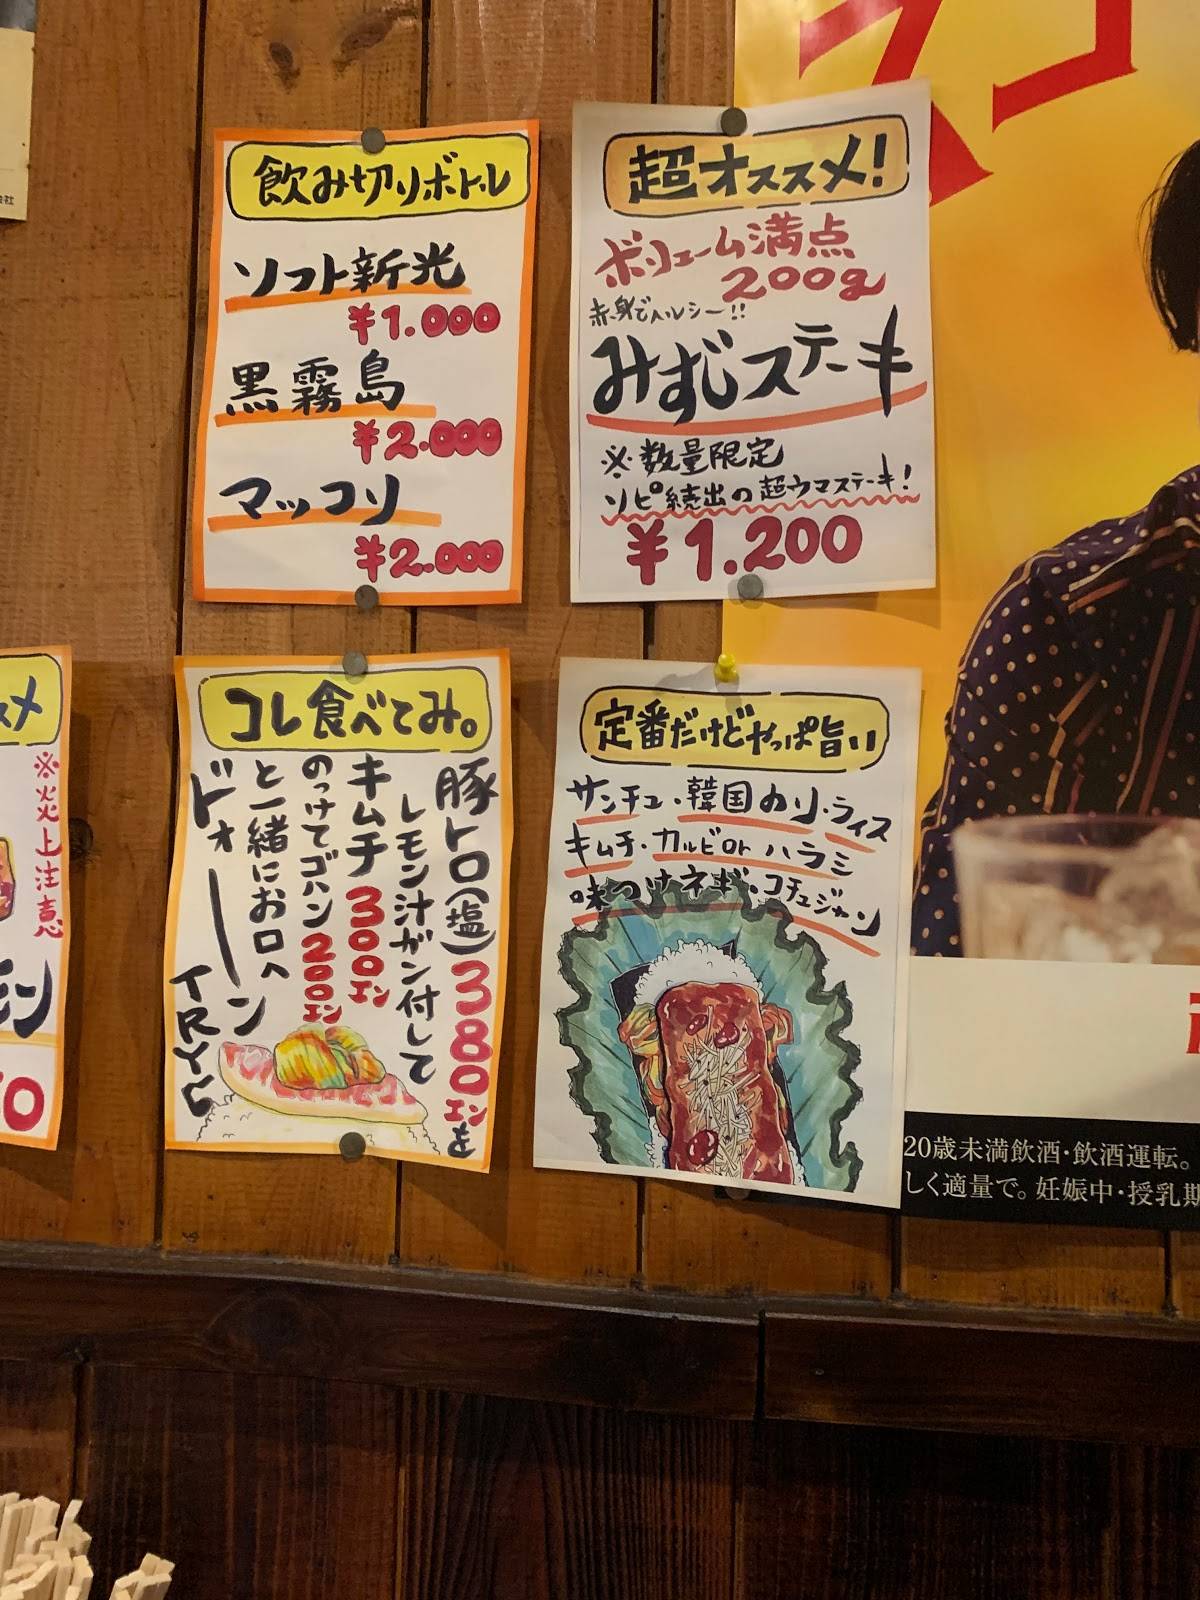 飲み切りボトル
ソフト新光
¥1.000
黒霧島
¥2.000
マッコリ
¥2.000
超オススメ!
ボリューム満点
200g
赤身でヘルシー!!
みすじステーキ
※数量限定
リピ続出の超ウマステーキ!
¥1.200
スメ
※炎上注意
モン
コレ食べてみ。
豚トロ(塩)380エンを
レモン汁ガン付して
キムチ300エン
のっけてゴハン200エン
と一緒にお口へ
ドォーーン
TRY
定番だけどやっぱ旨い
サンチュ・韓国のり・ライス
キムチ・カルビorハラミ
味つけネギ・コチュジャン
20歳未満飲酒・飲酒運転。
しく適量で。妊娠中・授乳期